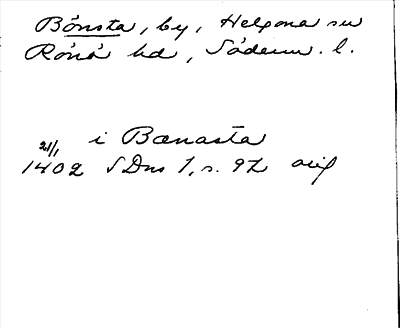 Bönsta, by, Helgona sn
Rönö hd, Söderm. l.
i Bænasta
21/1
1402 SDns 1, s. 92 orig